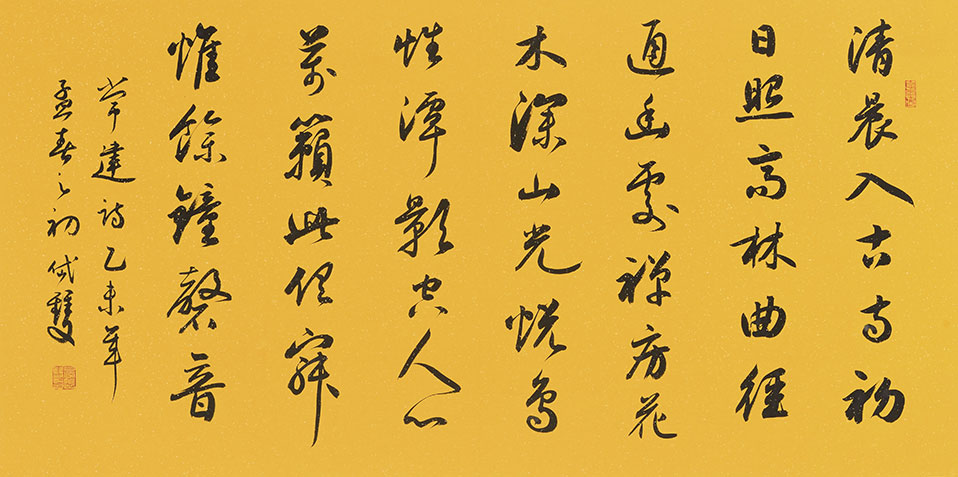 清晨入古寺初
日照高林曲徑
通幽處禪房花
木深山光悅鳥
性潭影空人心
萬籟此俱寂
惟餘鐘磬音
常建詩乙未年
孟春之初